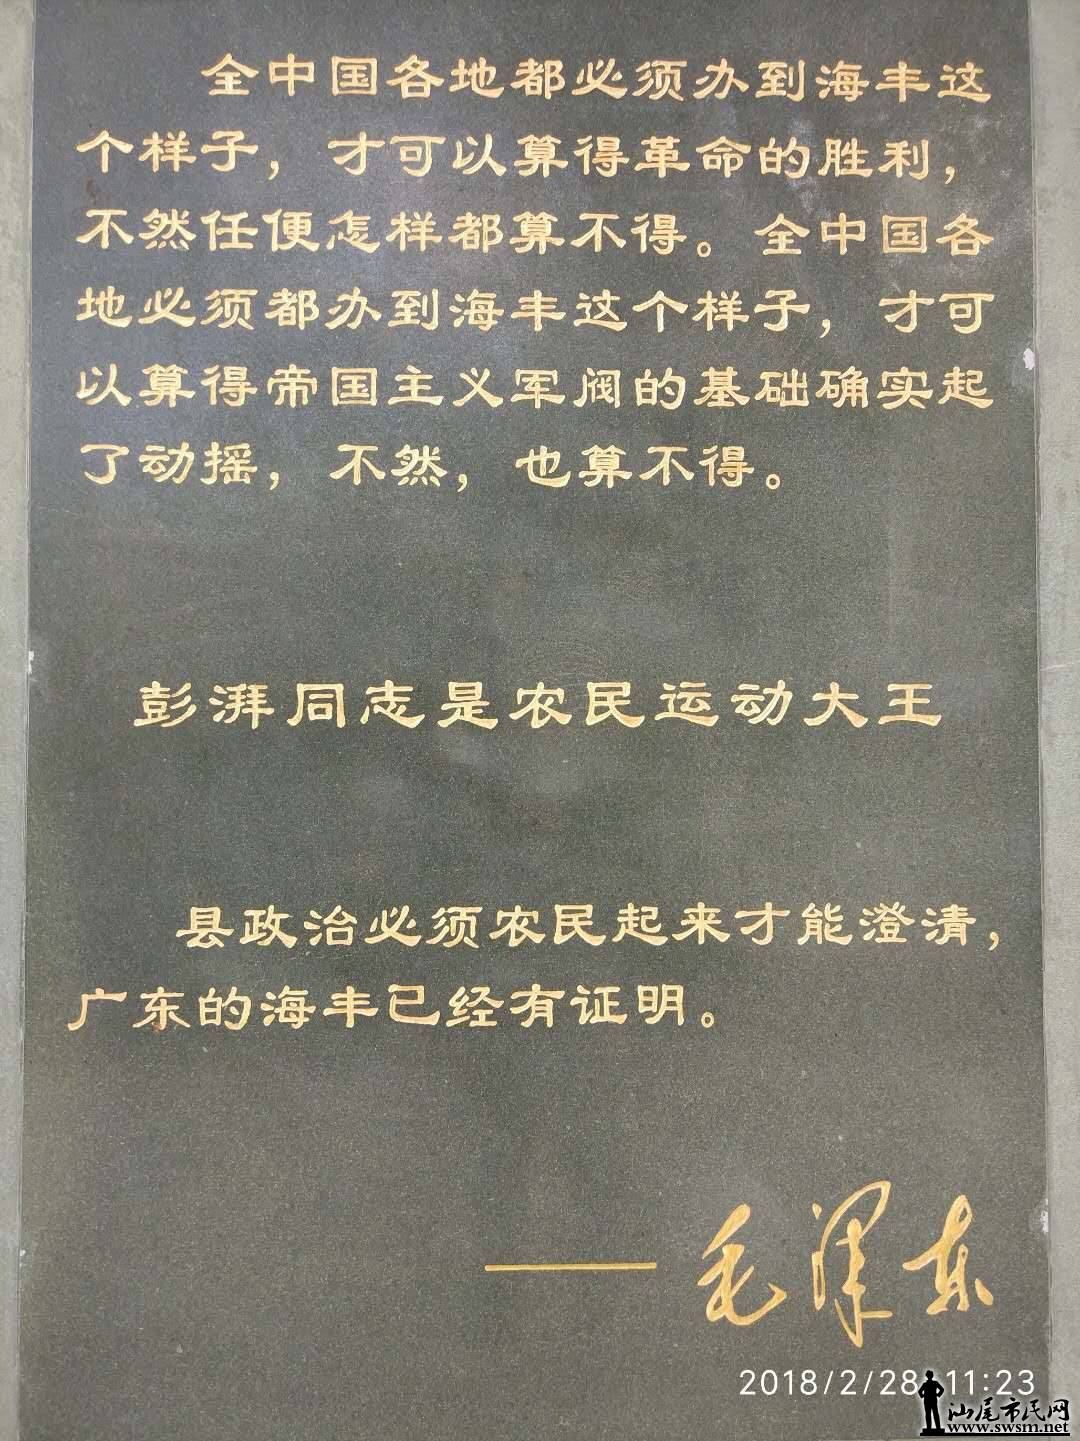 全中国各地都必须办到海丰这
个样子，才可以算得革命的胜利，
不然任便怎样都算不得。全中国各
地必须都办到海丰这个样子，才可
以算得帝国主义军阀的基础确实起
了动摇，不然，也算不得。
彭湃同志是农民运动大王
县政治必须农民起来才能澄清，
广东的海丰已经有证明。
—— 毛泽东
2018/2/28 11:23
汕尾市民网
www.swsm.net